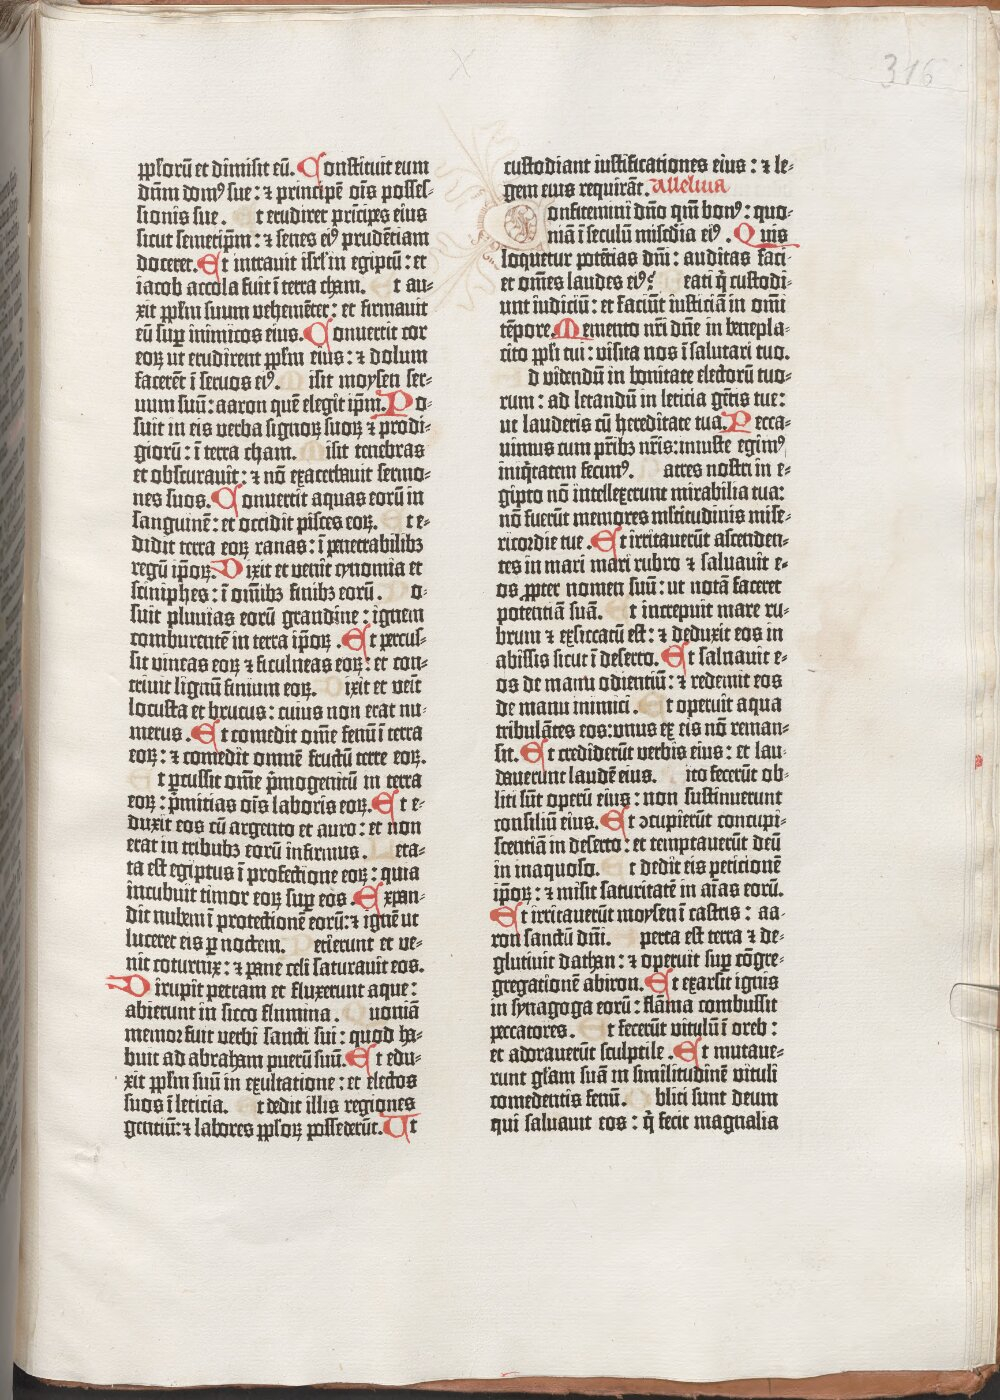 316
ꝓplorū et dimisit eū. Constituit eum
dn̄m domꝰ sue: ⁊ principē oīs posses-
sionis sue. t erudiret prīcipes eius
sicut semetip̄m: ⁊ senes eiꝰ prudētiam
doceret. Et intrauit isrl̄ in egiptū: et
iacob accola fuit ī terra cham. t au-
xit ppl̄m suum vehemēter: et firmauit
eū suꝑ inimicos eius. Conuertit cor
eoꝝ ut erudirent ppl̄m eius: ⁊ dolum
facerēt ī seruos eiꝰ. Misit moysen ser-
uum suū: aaron quē elegit ip̄m. Po-
suit in eis verba signoꝝ suoꝝ ⁊ prodi-
giorū: ī terra cham. Misit tenebras
et obscurauit: ⁊ nō exacerbauit sermo-
nes suos. Conuertit aquas eorū in
sanguinē: et occidit pisces eoꝝ. Et e-
didit terra eoꝝ ranas: ī penetrabilibꝫ
regū ip̄oꝝ. Dixit et venit cynomia et
sciniphes: ī om̄ibꝫ finibꝫ eorū. o-
suit pluuias eorū grandine: ignem
comburentē in terra ip̄oꝝ. Et percus-
sit vineas eoꝝ ⁊ ficulneas eoꝝ: et con-
triuit lignū finium eoꝝ. Dixit et veīt
locusta et brucus: cuius non erat nu-
merus. Et comedit om̄e fenū ī terra
eoꝝ: ⁊ comedit omnē fructū terre eoꝝ.
Et ꝑcussit om̄e pͥmogenitū in terra
eoꝝ: pͥmitias oīs laboris eoꝝ. Et e-
duxit eos cū argento et auro: et non
erat in tribubꝫ eorū infirmus. Leta-
ta est egiptus ī profectione eoꝝ: quia
incubuit timor eoꝝ suꝑ eos. Expan-
dit nubem ī protectionē eorū: ⁊ ignē ut
luceret eis ꝑ noctem. etierunt et ve-
nit coturnix: ⁊ pane celi saturauit eos.
Dirupit petram et fluxerunt aque:
abierunt in sicco flumina. Quoniā
memor fuit verbi sancti sui: quod ha-
buit ad abraham puerū suū. Et edu-
xit ppl̄m suū in exultatione: et electos
suos ī leticia. Et dedit illis regiones
gentiū: ⁊ labores ppl̄oꝝ possederūt. Ut
custodiant iustificationes eius: ⁊ le-
gem eius requirāt. Alleluia
onfitemini dn̄o qm̄ bonꝰ: quo-
niā ī seculū misc̄dia eiꝰ. Quis
loquetur potētias dn̄i: auditas faci-
et om̄es laudes eiꝰ? eati q̄ custodi-
unt iudiciū: et faciūt iusticiā in om̄i
tēpore. Memento nr̄i dn̄e in benepla-
cito ppl̄i tui: visita nos ī salutari tuo.
d videndū in bonitate electorū tuo-
rum: ad letandū in leticia gētis tue:
ut lauderis cū hereditate tua. Pecca-
uimus cum pr̄ibꝫ nr̄is: iniuste egimꝰ
iniq̄tatem fecimꝰ. atres nostri in e-
gipto nō intellexerunt mirabilia tua:
nō fuerūt memores mltitudinis mise-
ricordie tue. Et irritauerūt ascenden-
tes in mari mari rubro ⁊ saluauit e-
os ꝓpter nomen suū: ut notā faceret
potentiā suā. Et increpuit mare ru-
brum ⁊ exsiccatū est: ⁊ deduxit eos in
abissis sicut ī deserto. Et saluauit e-
os de manu odientiū: ⁊ redemit eos
de manu inimici. Et operuit aqua
tribulātes eos: vnus ex eis nō reman-
sit. Et crediderūt verbis eius: et lau-
dauerunt laudē eius. ito fecerūt ob-
liti sūt operū eius: non sustinuerunt
consiliū eius. Et ɔcupierūt concupi-
scentiā in deserto: et temptauerūt deū
in inaquoso. Et dedit eis peticionē
ip̄oꝝ: ⁊ misit saturitatē in aīas eorū.
Et irritauerūt moysen ī castris: aa-
ron sanctū dn̄i. perta est terra ⁊ de-
glutiuit dathan: ⁊ operuit suꝑ cōgre-
gationē abiron. Et exarsit ignis
in synagoga eorū: flāma combussit
peccatores. Et fecerūt vitulū ī oreb:
et adorauerūt sculptile. Et mutaue-
runt glām suā in similitudinē vituli
comedentis fenū. Obliti sunt deum
qui saluauit eos: q̄ fecit magnalia